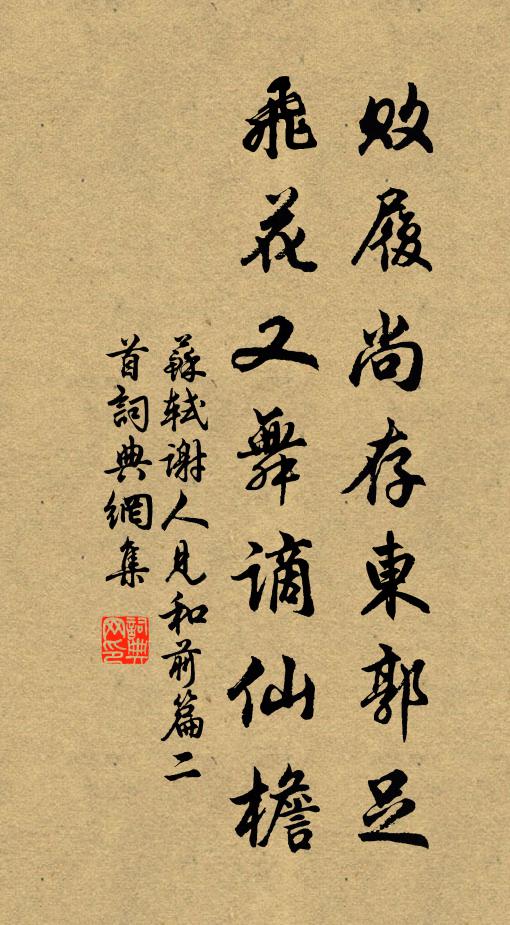 敗履尚存東郭足
飛花又舞謫仙檐
蘇軾謝人見和前篇二
首詞典網集
詞典
网印